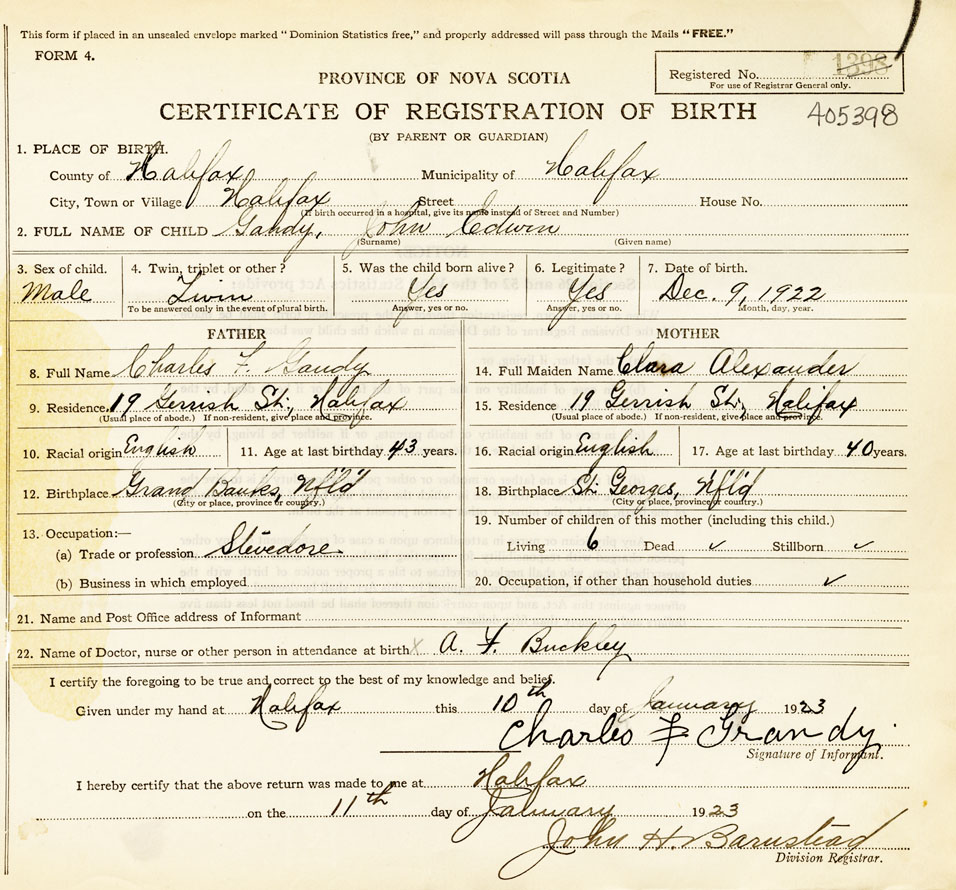 This form if placed in an unsealed envelope marked "Dominion Statistics free," and properly addressed will pass through the Mails "FREE."
FORM 4.
PROVINCE OF NOVA SCOTIA
Registered No. 1398
For use of Registrar General only.
CERTIFICATE OF REGISTRATION OF BIRTH
405398
(BY PARENT OR GUARDIAN)
1. PLACE OF BIRTH.
County of Halifax Municipality of Halifax
City, Town or Village Halifax Street House No.
(If birth occurred in a hospital, give its name instead of Street and Number)
2. FULL NAME OF CHILD Gandy, John Edwin
(Surname) (Given name)
3. Sex of child. 4. Twin, triplet or other? 5. Was the child born alive? 6. Legitimate? 7. Date of birth.
Male Twin Yes Yes Dec. 9, 1922
To be answered only in the event of plural birth. Answer, yes or no. Answer, yes or no. Month, day, year.
FATHER MOTHER
8. Full Name Charles F. Gandy 14. Full Maiden Name Clara Alexander
9. Residence 19 Gerrish St., Halifax 15. Residence 19 Gerrish St., Halifax
(Usual place of abode.) If non-resident, give place and province. (Usual place of abode.) If non-resident, give place and province.
10. Racial origin English 11. Age at last birthday 43 years. 16. Racial origin English 17. Age at last birthday 40 years.
12. Birthplace Grand Banks, Nfl'd 18. Birthplace St. Georges, Nfl'd
(City or place, province or country.) (City or place, province or country.)
13. Occupation:— 19. Number of children of this mother (including this child.)
(a) Trade or profession Stevedore Living 6 Dead ✓ Stillborn ✓
(b) Business in which employed 20. Occupation, if other than household duties ✓
21. Name and Post Office address of Informant
22. Name of Doctor, nurse or other person in attendance at birth X A. F. Buckley
I certify the foregoing to be true and correct to the best of my knowledge and belief.
Given under my hand at Halifax this 10th day of January 1923
Charles F Grandy
Signature of Informant.
I hereby certify that the above return was made to me at Halifax
on the 11th day of January 1923
John H. Barnstead
Division Registrar.